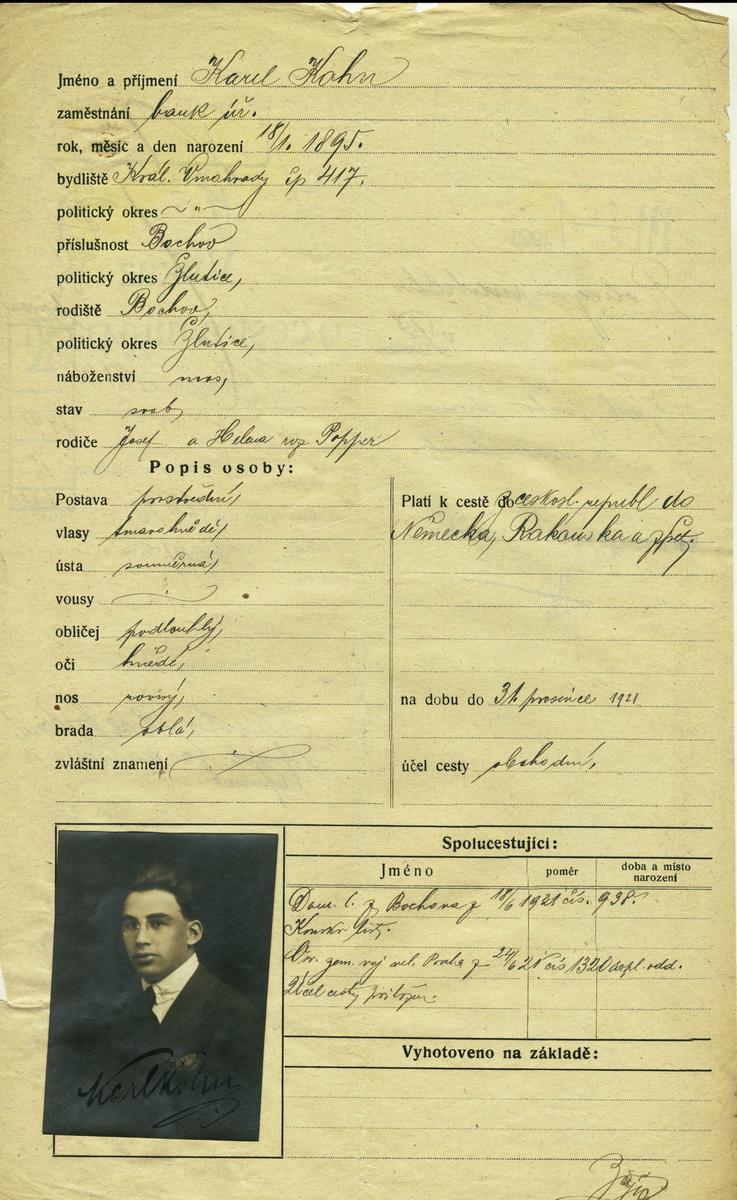 Jméno a příjmení Karel Kohn
zaměstnání bank úř.
rok, měsíc a den narození 18/1. 1895.
bydliště Král. Vinohrady čp 417.
politický okres ~ " ~
příslušnost Bochov
politický okres Žlutice,
rodiště Bochov,
politický okres Žlutice,
náboženství mos,
stav svob,
rodiče Josef a Helena roz Popper
Popis osoby:
Postava prostřední,
vlasy tmavohnědé,
ústa souměrná,
vousy
obličej podlouhlý,
oči hnědé,
nos rovný,
brada oblá,
zvláštní znamení
Platí k cestě do z českosl. republ do
Německa, Rakouska a zpět.
na dobu do 31. prosince 1921
účel cesty obchodní,
Spolucestující:
Jméno poměr doba a místo narození
Dom. l. z Bochova z 18/6 1921 čís. 938.
Konskr. list.
Osv. zem. voj. vel. Praha z 24/6 21 čís 1320 dopl. odd.
Účel cesty přilož.
Vyhotoveno na základě:
Karl Kohn